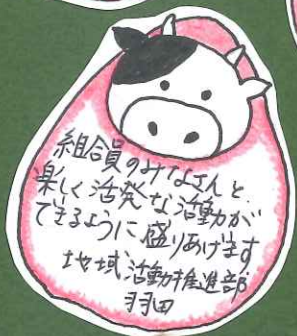 組合員のみなさんと
楽しく活発な活動が
できるように盛りあげます
地域活動推進部
羽田